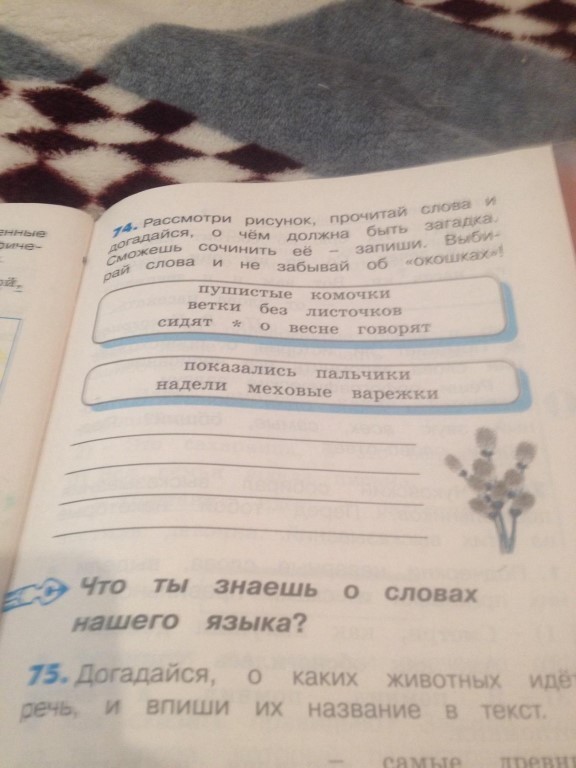 енные
риче-
ой,
74. Рассмотри рисунок, прочитай слова и
догадайся, о чём должна быть загадка.
Сможешь сочинить её – запиши. Выби-
рай слова и не забывай об «окошках»!
пушистые комочки
ветки без листочков
сидят * о весне говорят
показались пальчики
надели меховые варежки
Что ты знаешь о словах
нашего языка?
75. Догадайся, о каких животных идёт
речь, и впиши их название в текст.
– самые древни